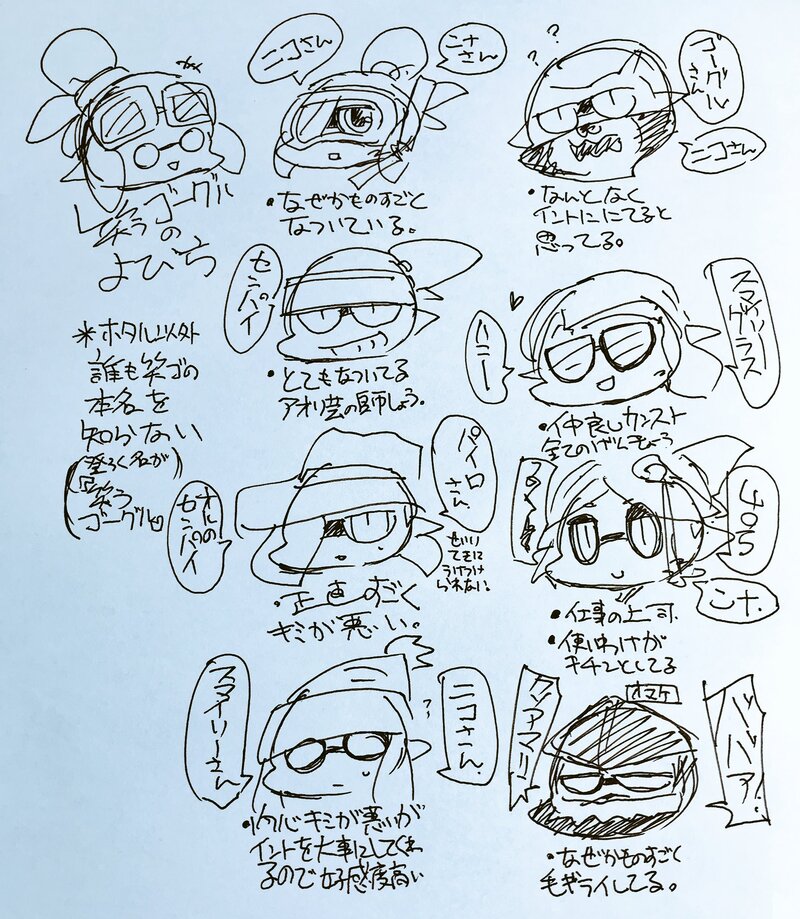 笑うゴーグル
の
よびち
*ホタル以外
誰も笑ゴの
本名を
知らない
(登ろく名が
笑う
ゴーグル)
ニコさん
ニナさん
・なぜかものすごく
なついている。
ゴーグルさん
ニコさん
・なんとなく
イントににてると
思ってる。
センパイ
・とてもなついてる
アオリ芸の師しょう。
スマイリーグラス
ハニー
・仲良しカンスト
全てのげんきょう
パイロさん
オルののセンパイ
せいりてきに
うけつけ
られない。
・正直すごく
キミが悪い。
405
ニナ.
・仕事の上司.
・使いわけが
キチンとしてる
スマイリーさん
ニコさん.
・内心キミが悪いが
イントを大事にしてくれ
るので好感度高い
オマケ
クソアマリン☆
ババア!
・なぜかものすごく
毛ギライしてる。